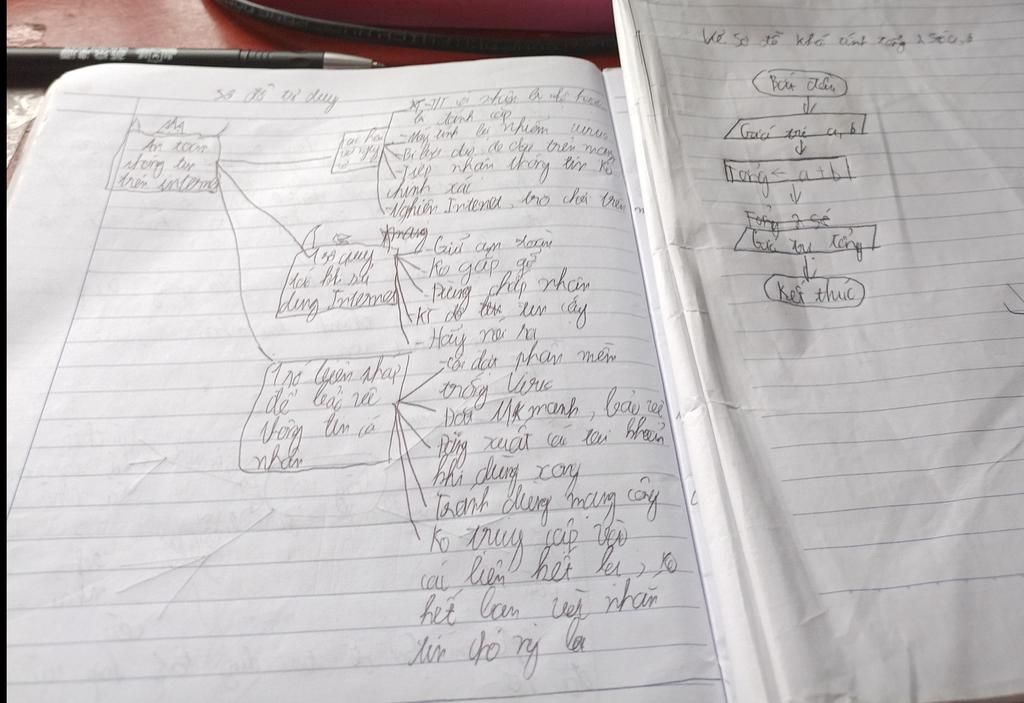 Sơ đồ tư duy
An toàn
thông tin
trên internet
TT-TT cá nhân bị
đánh cắp
- Máy tính bị nhiễm virus
- Bị lừa đảo, đe dọa trên mạng
- Tiếp nhận thông tin ko
chính xác
- Nghiện Internet, trò chơi trên
mạng
1 số quy
tắc khi sử
dụng Internet
- Giữ an toàn
- Ko gặp gỡ
- Đừng chấp nhận
- độ tin cậy
- Hãy nói ra
1 số biện pháp
để bảo vệ
thông tin cá
nhân
- Cài đặt phần mền
trống Virus
Đặt MK mạnh, bảo vệ
Đăng xuất các tài khoản
khi dùng xong
Tránh dùng mạng công
Ko truy cập vào
các liên kết lạ, ko
kết bạn với nhắn
tin cho ng lạ
Vẽ sơ đồ khối tính tổng 2 số a, b
Bắt đầu
Giá trị a, b
Tổng ← a + b
Tổng 2 số
Giá trị tổng
Kết thúc